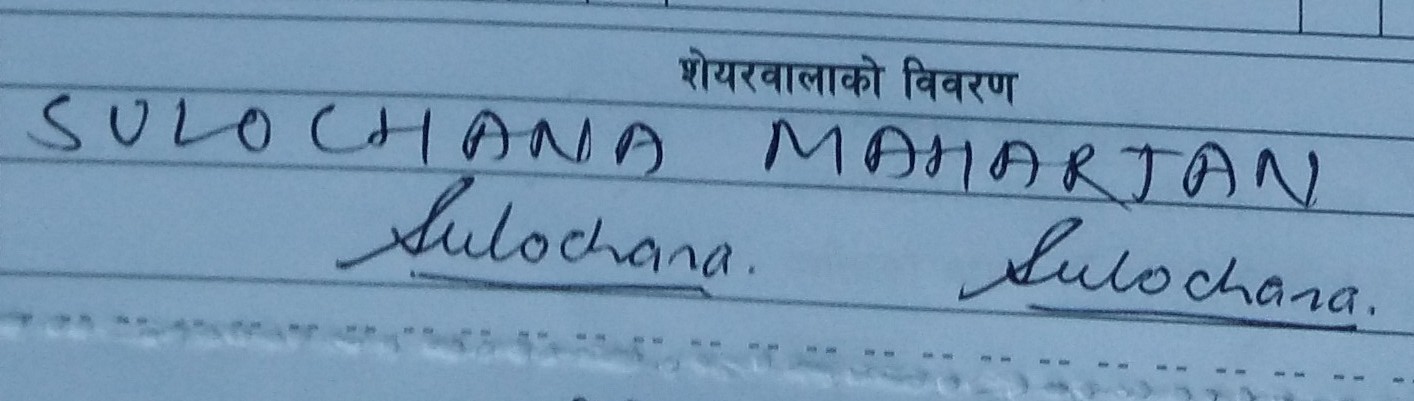 शेयरवालाको विवरण
SULOCHANA MAHARJAN
Sulochana. Sulochana.